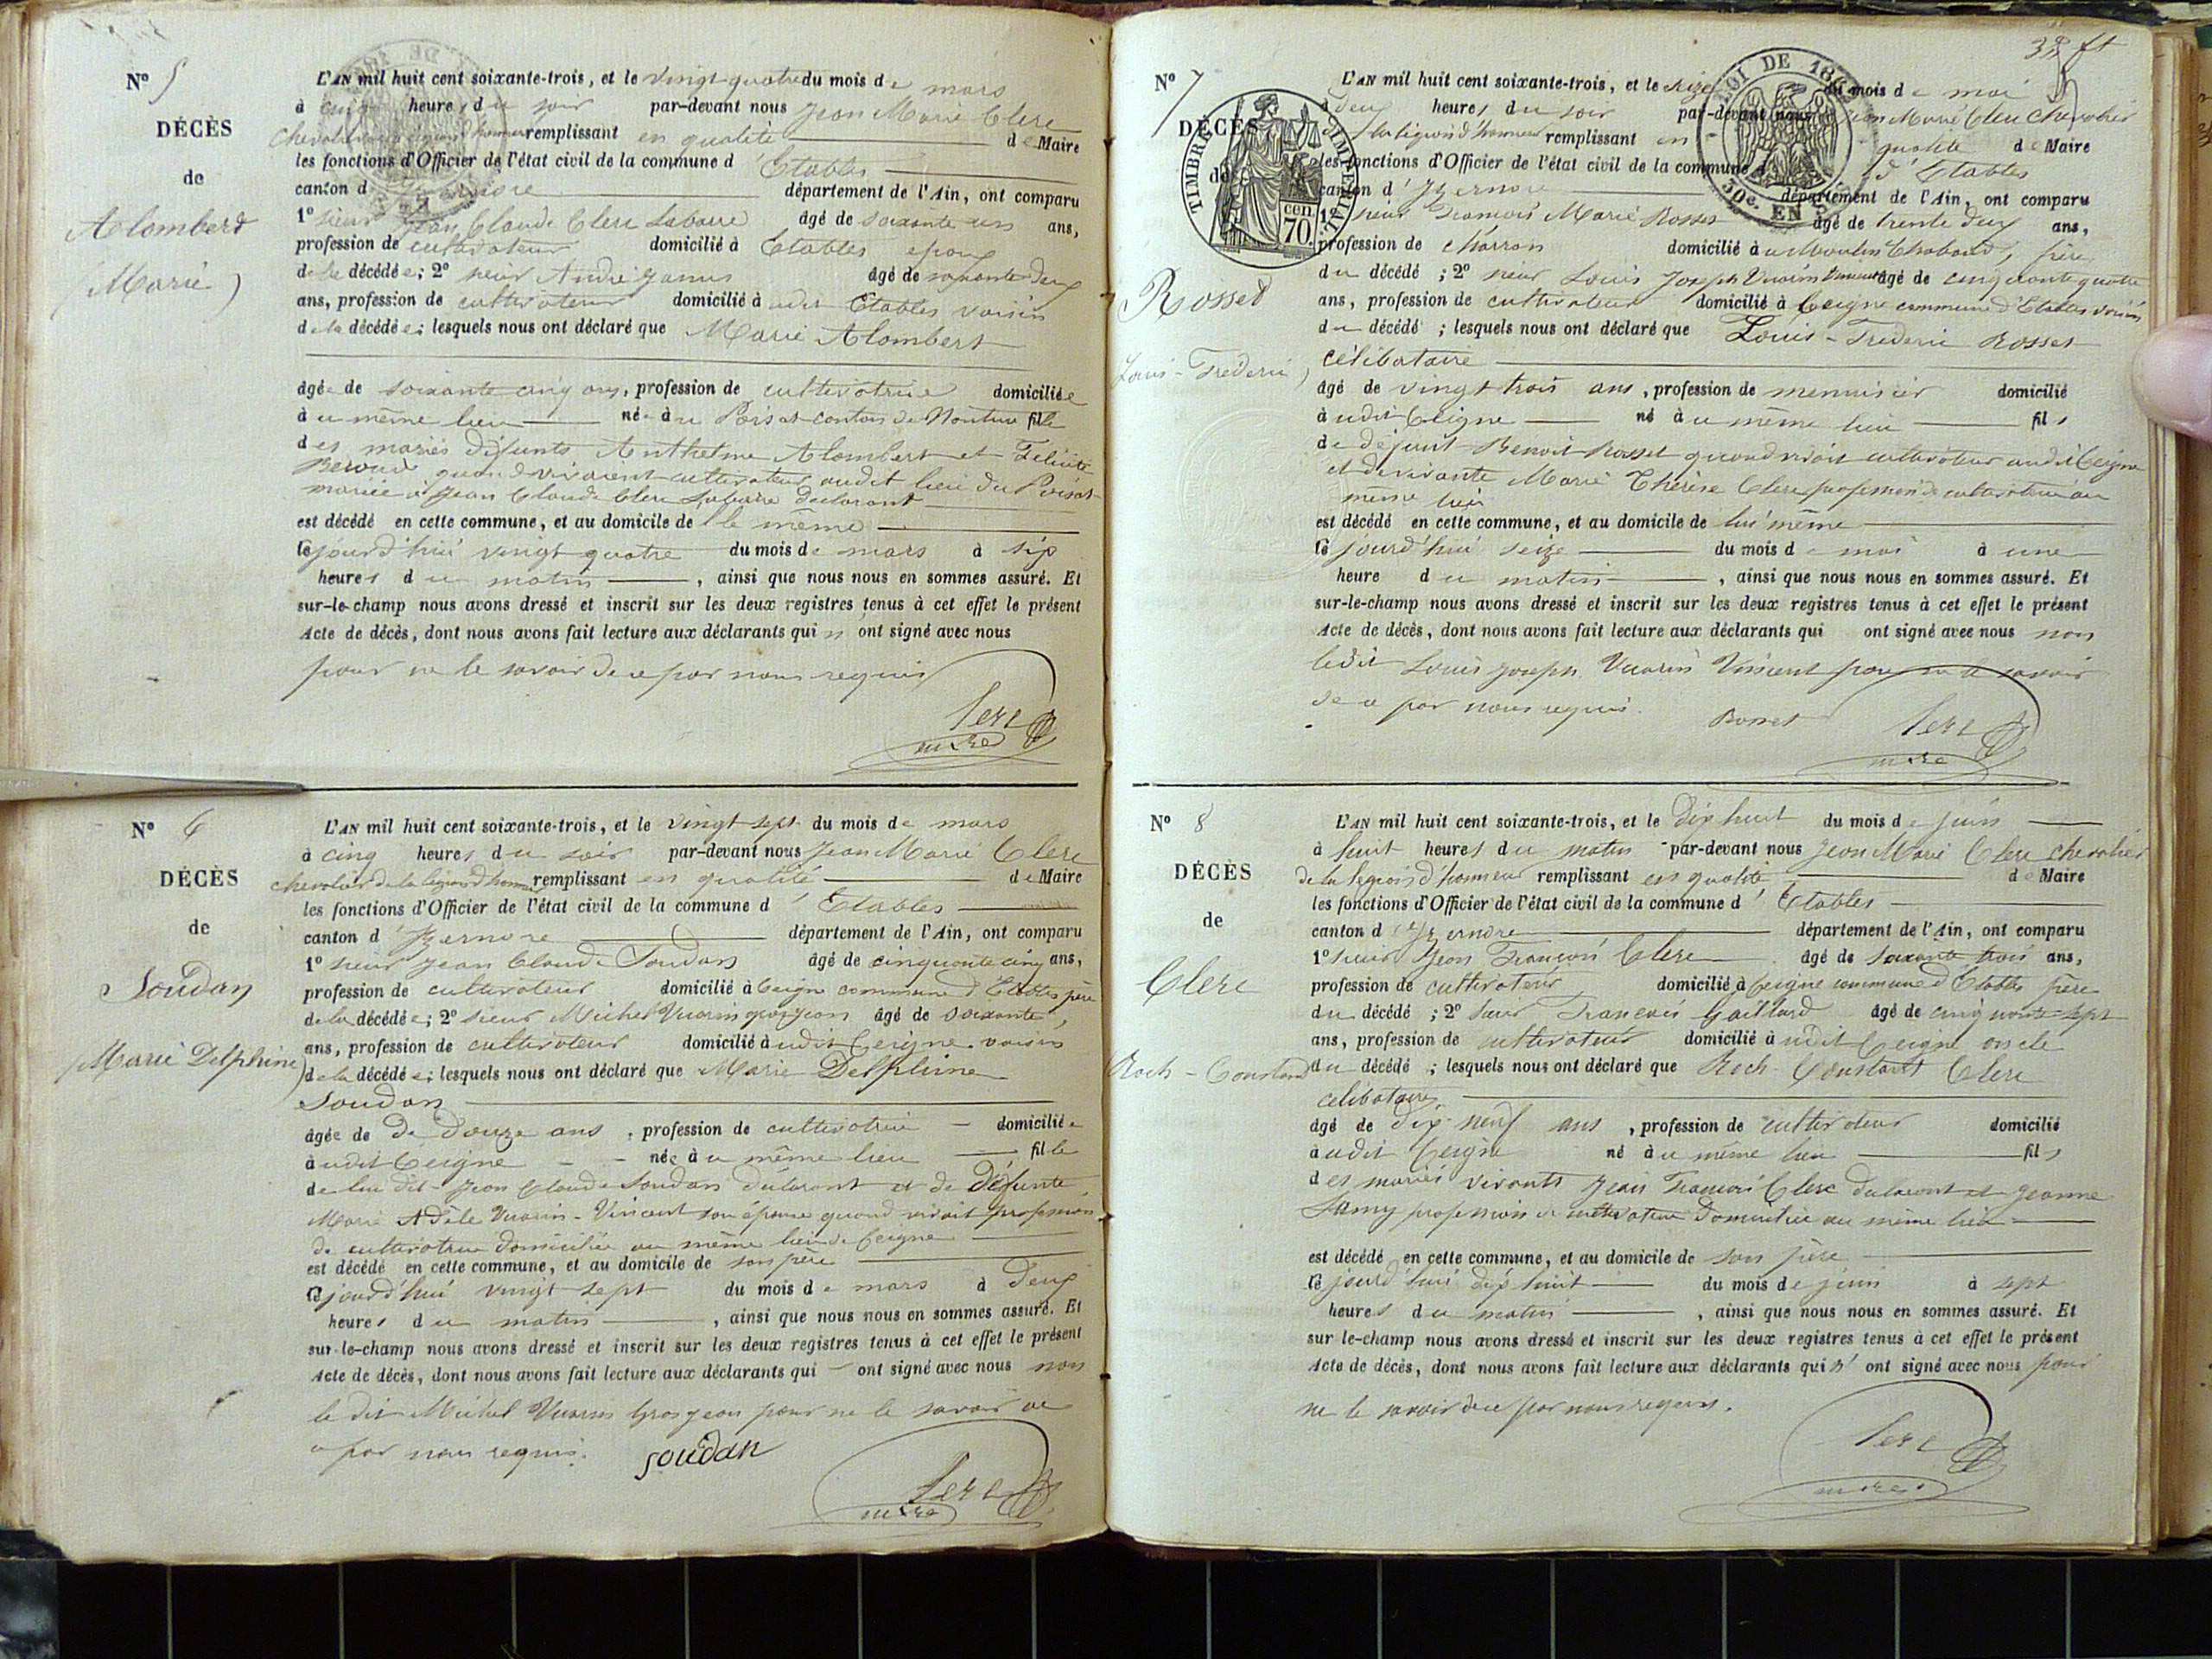 N° 5
DÉCÈS
de
Alombert
(Marie)
L'AN mil huit cent soixante-trois, et le vingt quatre du mois de mars
à cinq heures du soir par-devant nous Jean Marie Clerc
chevalier de la légion d'honneur remplissant en qualité de Maire
les fonctions d'Officier de l'état civil de la commune d'Etables
canton d'Izernore département de l'Ain, ont comparu
1° sieur Jean Claude Clerc Labarre âgé de soixante un ans,
profession de cultivateur domicilié à Etables époux
de la décédée; 2° sieur André Janus âgé de soixante deux
ans, profession de cultivateur domicilié à udit Etables voisin
de la décédée; lesquels nous ont déclaré que Marie Alombert
âgée de soixante cinq ans, profession de cultivatrice domiciliée
au même lieu née au Poisat canton de Nantua fille
des mariés défunts Anthelme Alombert et Félicité
quand vivaient cultivateurs audit lieu du Poisat
mariée à Jean Claude Clerc Labarre déclarant
est décédé en cette commune, et au domicile de le même
cejourd'hui vingt quatre du mois de mars à six
heures du matin, ainsi que nous nous en sommes assuré. Et
sur-le-champ nous avons dressé et inscrit sur les deux registres tenus à cet effet le présent
Acte de décès, dont nous avons fait lecture aux déclarants qui n'ont signé avec nous
pour ne le savoir de ce par nous requis
Clerc
maire
N° 6
DÉCÈS
de
Soudan
(Marie Delphine)
L'AN mil huit cent soixante-trois, et le vingt sept du mois de mars
à cinq heures du soir par-devant nous Jean Marie Clerc
chevalier de la légion d'honneur remplissant en qualité de Maire
les fonctions d'Officier de l'état civil de la commune d'Etables
canton d'Izernore département de l'Ain, ont comparu
1° sieur Jean Claude Soudan âgé de cinquante cinq ans,
profession de cultivateur domicilié à Ceigne commune d'Etables père
de la décédée; 2° sieur Michel Vuarin grosjean âgé de soixante,
ans, profession de cultivateur domicilié à udit Ceigne voisin
de la décédée; lesquels nous ont déclaré que Marie Delphine
Soudan
âgée de de douze ans, profession de cultivatrice domiciliée
à udit Ceigne née au même lieu fille
de lui dit Jean Claude Soudan déclarant et de défunte
Marie Adèle Vuarin-Vincent son épouse quand vivait profession
de cultivatrice domiciliée au même lieu de Ceigne
est décédé en cette commune, et au domicile de son père
cejourd'hui vingt sept du mois de mars à deux
heures du matin, ainsi que nous nous en sommes assuré. Et
sur-le-champ nous avons dressé et inscrit sur les deux registres tenus à cet effet le présent
Acte de décès, dont nous avons fait lecture aux déclarants qui ont signé avec nous non
le dit Michel Vuarin Grosjean pour ne le savoir de
ce par nous requis. soudan
Clerc
maire
N° 7
DÉCÈS
de
Rosset
Louis-Frédéric)
TIMBRE IMPERIAL
70 cen.
LOI DE 1862
50c. EN
L'AN mil huit cent soixante-trois, et le seize du mois de mai
à deux heures du soir par-devant nous Jean Marie Clerc chevalier
de la légion d'honneur remplissant en qualité de Maire
les fonctions d'Officier de l'état civil de la commune d'Etables
canton d'Izernore département de l'Ain, ont comparu
1° sieur François Marie Rosset âgé de trente deux ans,
profession de charron domicilié au Moulin Chabaud, frère
du décédé; 2° sieur Louis Joseph Vuarin Vincent âgé de cinquante quatre
ans, profession de cultivateur domicilié à Ceigne commune d'Etables voisin
du décédé; lesquels nous ont déclaré que Louis-Frédéric Rosset
célibataire
âgé de vingt trois ans, profession de menuisier domicilié
à udit Ceigne né au même lieu fils
de défunt Benoit Rosset quand vivait cultivateur audit Ceigne
et de vivante Marie Thérèse Clerc profession de cultivatrice au
même lieu
est décédé en cette commune, et au domicile de lui même
cejourd'hui seize du mois de mai à une
heure du matin, ainsi que nous nous en sommes assuré. Et
sur-le-champ nous avons dressé et inscrit sur les deux registres tenus à cet effet le présent
Acte de décès, dont nous avons fait lecture aux déclarants qui ont signé avec nous non
ledit Louis Joseph Vuarin Vincent pour ne le savoir
de ce par nous requis. Rosset Clerc
maire
N° 8
DÉCÈS
de
Clerc
Roch-Constant
L'AN mil huit cent soixante-trois, et le dix huit du mois de juin
à huit heures du matin par-devant nous Jean Marie Clerc chevalier
de la légion d'honneur remplissant en qualité de Maire
les fonctions d'Officier de l'état civil de la commune d'Etables
canton d'Izernore département de l'Ain, ont comparu
1° sieur Jean François Clerc âgé de soixante trois ans,
profession de cultivateur domicilié à Ceigne commune d'Etables père
du décédé; 2° sieur François Gaillard âgé de cinquante-sept
ans, profession de cultivateur domicilié à udit Ceigne oncle
du décédé; lesquels nous ont déclaré que Roch Constant Clerc
célibataire
âgé de dix neuf ans, profession de cultivateur domicilié
à udit Ceigne né au même lieu fils
des mariés vivants Jean François Clerc déclarant et Jeanne
Lamy profession de cultivatrice domiciliée au même lieu
est décédé en cette commune, et au domicile de son père
cejourd'hui dix huit du mois de juin à sept
heures du matin, ainsi que nous nous en sommes assuré. Et
sur le-champ nous avons dressé et inscrit sur les deux registres tenus à cet effet le présent
Acte de décès, dont nous avons fait lecture aux déclarants qui n'ont signé avec nous pour
ne le savoir de ce par nous requis.
Clerc
maire